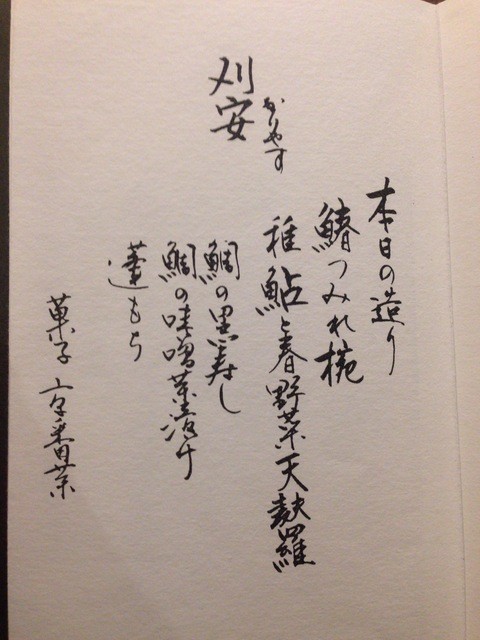 刈安
かりやす
本日の造り
鰆つみれ椀
稚鮎と春野菜天麩羅
鯛の黒寿し
鯛の味噌茶漬け
蓮もち
菓子 京番茶